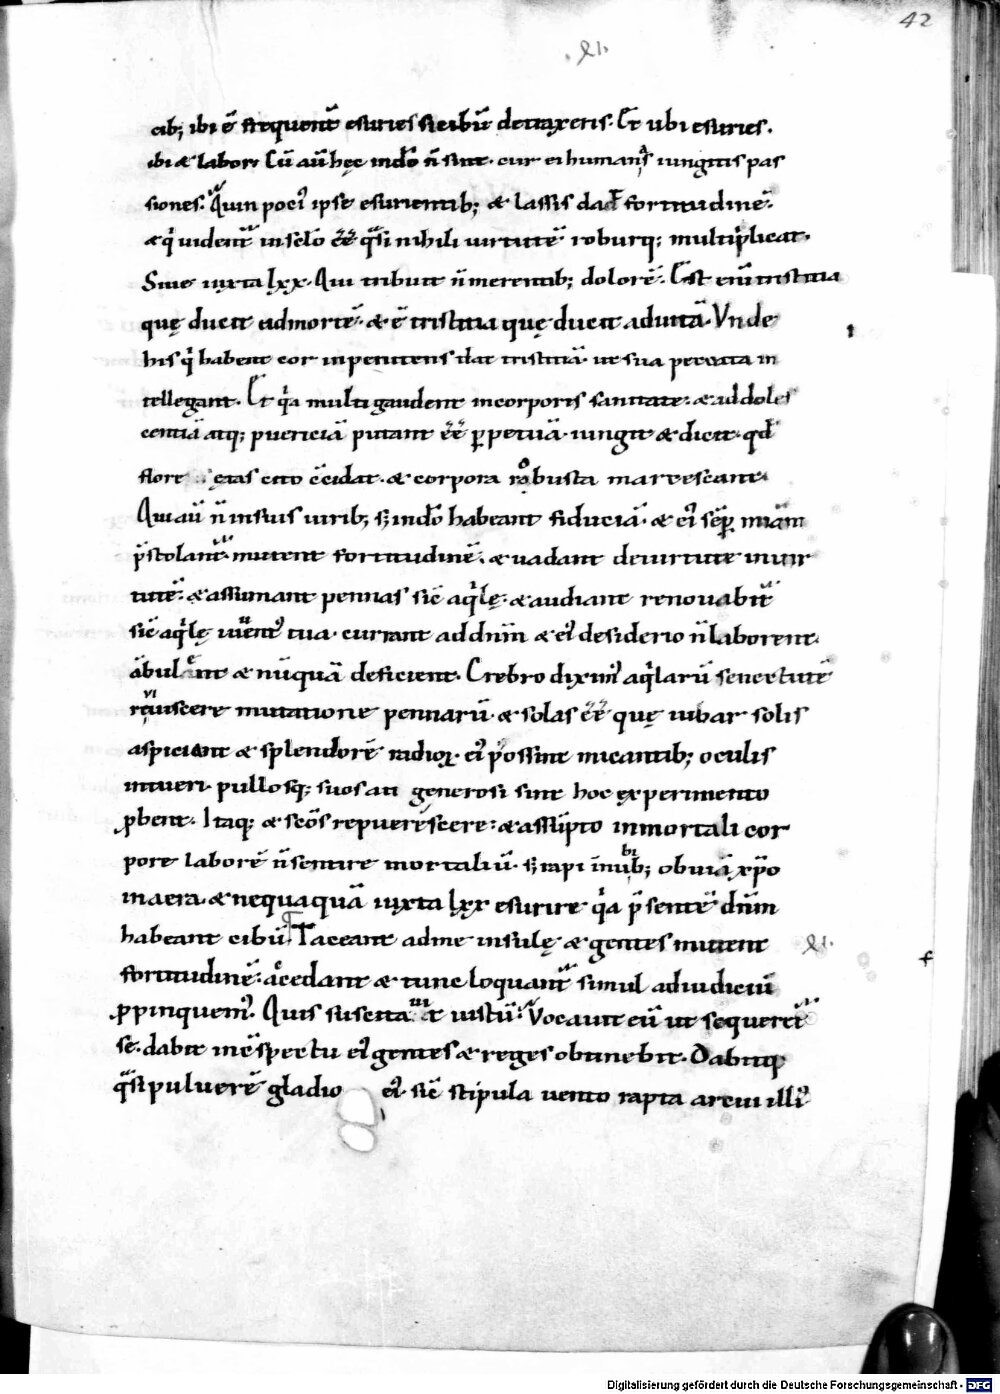 42
.xli.
cib; ibi ē frequent̄ esuries si cibū detraxeris. Et ubi esuries.
ibi & labor. Cū aūt hęc in dō n̄ sint. cur ei humanas iungitis pas
siones. Quin poci' ipse esurientib; & lassis dat fortitudinē.
& q̇ uident̄ in selo ēē q̄si nihili uirtutē roburq; multiplicat.
Siue iuxta lxx. Qui tribuit n̄ merentib; dolorē. Est enī tristitia
quę ducit ad mortē. & ē tristitia quę ducit ad uitā. Vnde
his q̇ habent cor inpenitens dat tristitiā. ut sua peccata in
tellegant. Et q̇a multi gaudent in corporis sanitate. & addoles
centiā atq; puericiā putant ēē ꝑpetuā. iungit & dicit. qđ
flore ętas cito c̄cidat. & corpora robusta marcescant.
Qui aū n̄ in suis uirib; sꝫ in dō habeant fiduciā. & ei' sēꝑ miām
p̄stolant̄. mutent fortitudinē. & uadant de uirtute in uir
tutē. & assumant pennas sic̄ aq̇lę. & audiant renouabit̄
sic̄ aq̇lę iuuent' tua. currant ad dn̄m & ei' desiderio n̄ laborent.
ābulent & nūquā deficient. Crebro dixim' aq̇larū senectutē
reuiuiscere mutatione pennarū. & solas ēē quę iubar solis
aspiciant & splendorē radioꝝ. ei' possint micantib; oculis
intueri. pullosq; suos an gęnerosi sint hoc experimento
ꝓbent. Itaq; & sc̄os repuerescere. & assūpto inmortali cor
pore laborē n̄ sentire mortaliū. sꝫ rapi in nubib; obuiā xp̄o
in aera. & nequaquā iuxta lxx esurire q̇a p̄sentē dn̄m
habeant cibū. Taceant ad me insulę & gentes mutent
xli.
fortitudinē. accedant & tunc loquant̄ simul ad iudiciū
ꝓpinquem'. Quis suscitauit iustū. Vocauit eū ut sequeret̄
se. dabit in c̄spectu ei' gentes & reges obtinebit. Dabitq;
q̄si puluerē gladio ei'. sic̄ stipula uento rapta arcui illi'
Digitalisierung gefördert durch die Deutsche Forschungsgemeinschaft - DFG